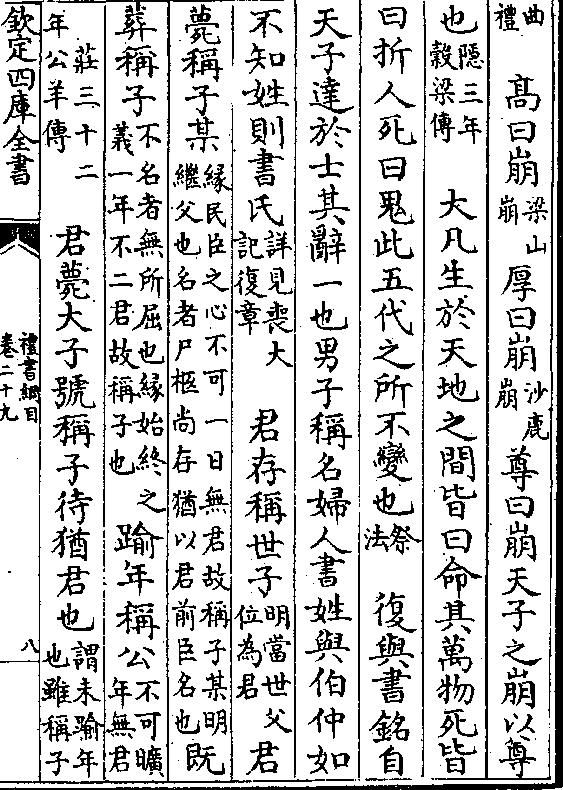 曲禮髙曰崩梁山崩厚曰崩沙鹿崩尊曰崩天子之崩以尊
也隠三年榖梁傳大凡生於天地之間皆曰命其萬物死皆
曰折人死曰鬼此五代之所不變也祭法復與書銘自
天子達於士其辭一也男子稱名婦人書姓與伯仲如
不知姓則書氏詳見喪大記復章君存稱世子明當世父位為君君
薨稱子某縁民臣之心不可一日無君故稱子某明繼父也名者尸柩尚存猶以君前臣名也既
葬稱子不名者無所屈也縁始終之義一年不二君故稱子也踰年稱公不可曠年無君
莊三十二年公羊傳君薨大子號稱子待猶君也謂未踰年也雖稱子
欽定四庫全書
禮書綱目
卷二十九
八